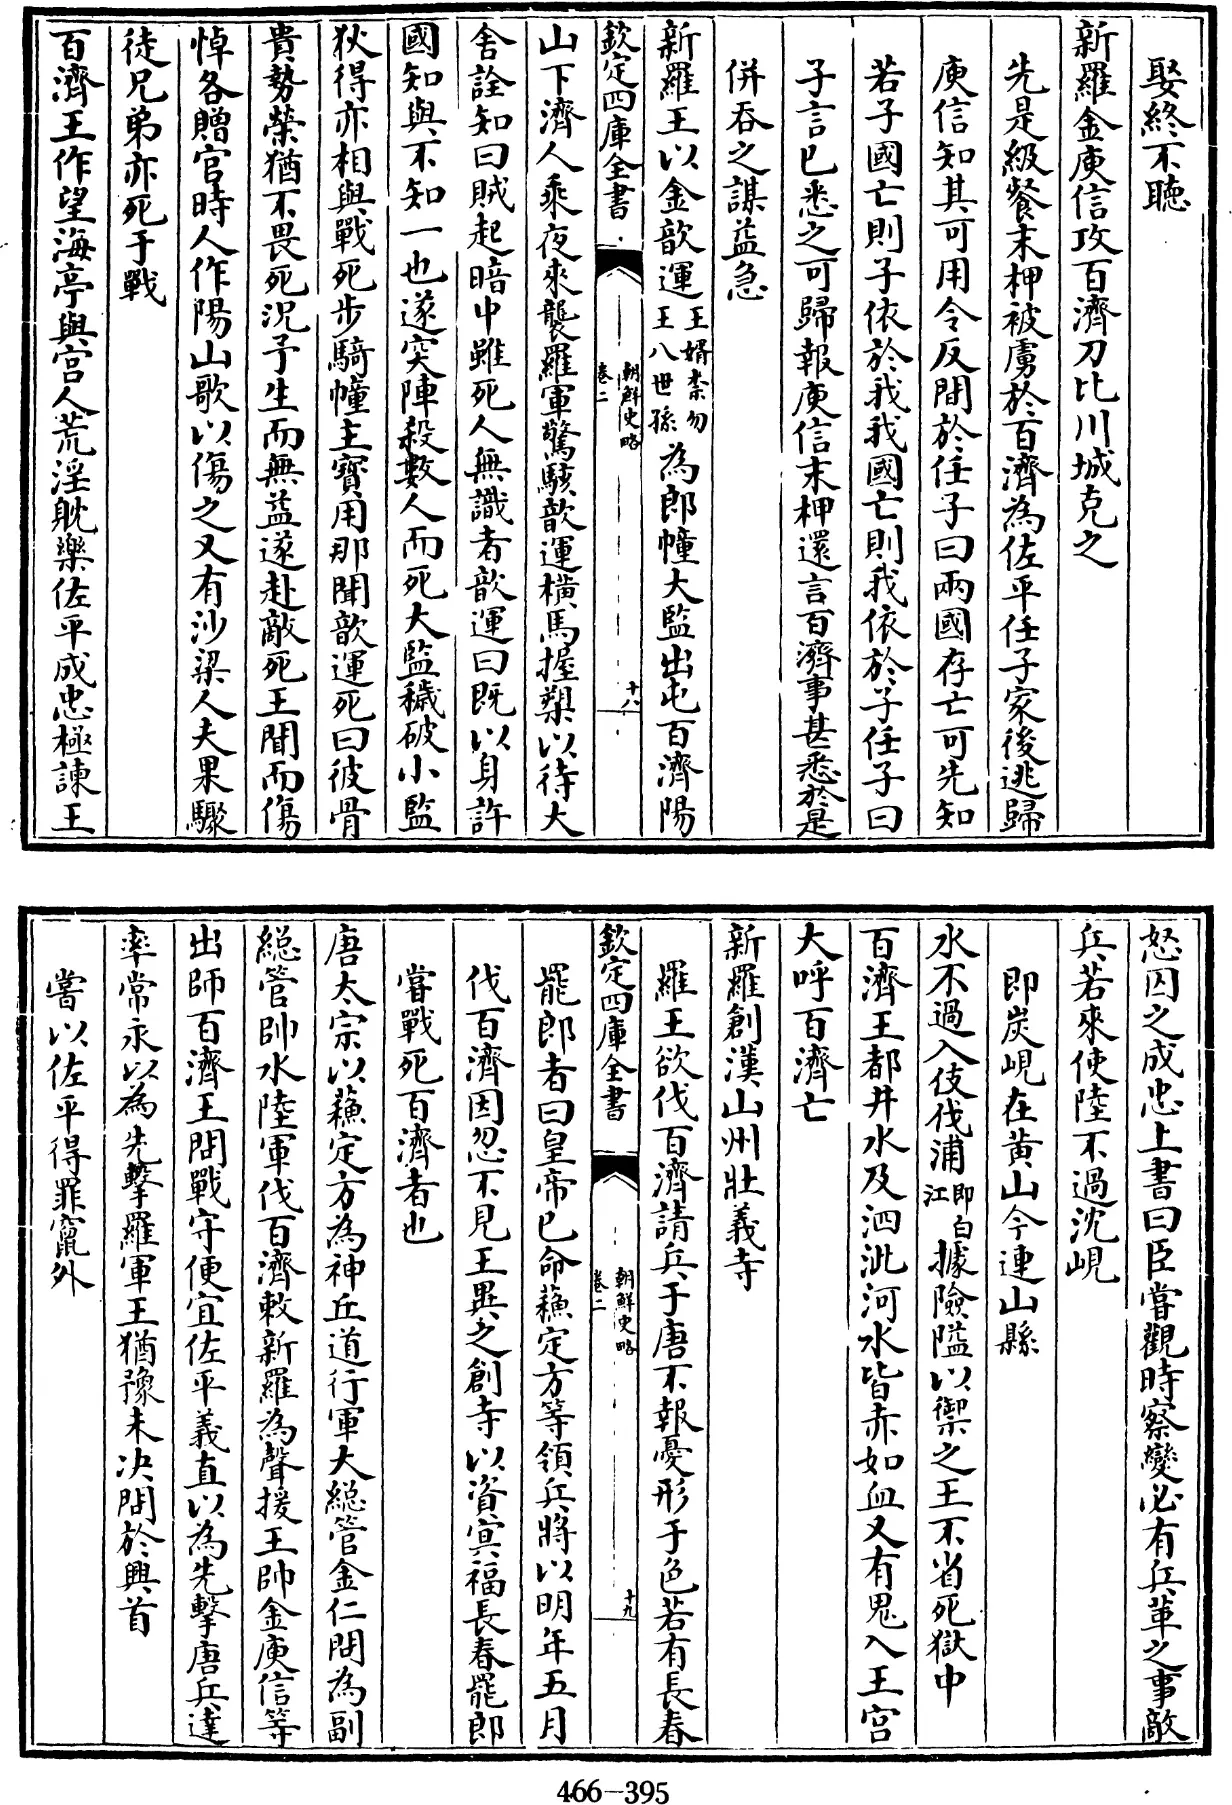 娶終不聽
新羅金庾信攻百濟刀比川城克之
先是級餐末柙被虜於百濟為佐平任子家後逃歸
庾信知其可用令反間於任子曰兩國存亡可先知
若子國亡則子依於我我國亡則我依於子任子曰
子言已悉之可歸報庾信末柙還言百濟事甚悉於是
併吞之謀益急
新羅王以金歆運王婿柰勿王八世孫為郎幢大監出屯百濟陽
欽定四庫全書
朝鮮史略
卷二
十八
山下濟人乘夜來襲羅軍驚駭歆運橫馬握槊以待大
舍詮知曰賊起暗中雖死人無識者歆運曰既以身許
國知與不知一也遂突陣殺數人而死大監穢破小監
狄得亦相與戰死步騎幢主寶用那聞歆運死曰彼骨
貴勢榮猶不畏死況予生而無益遂赴敵死王聞而傷
悼各贈官時人作陽山歌以傷之又有沙梁人夫果驟
徒兄弟亦死于戰
百濟王作望海亭與宮人荒淫耽樂佐平成忠極諫王
怒囚之成忠上書曰臣嘗觀時察變必有兵革之事敵
兵若來使陸不過沈峴
即炭峴在黄山今連山縣
水不過入伎伐浦即白江據險隘以禦之王不省死獄中
百濟王都井水及泗沘河水皆赤如血又有鬼入王宮
大呼百濟亡
新羅創漢山州壯義寺
羅王欲伐百濟請兵于唐不報憂形于色若有長春
欽定四庫全書
朝鮮史略
卷二
十九
罷郎者曰皇帝已命蘓定方等領兵將以明年五月
伐百濟因忽不見王異之創寺以資冥福長春罷郎
嘗戰死百濟者也
唐太宗以蘓定方為神丘道行軍大緫管金仁問為副
緫管帥水陸軍伐百濟敕新羅為聲援王帥金庾信等
出師百濟王問戰守便宜佐平義直以為先擊唐兵達
率常永以為先擊羅軍王猶豫未决問於興首
嘗以佐平得罪竄外
466-395